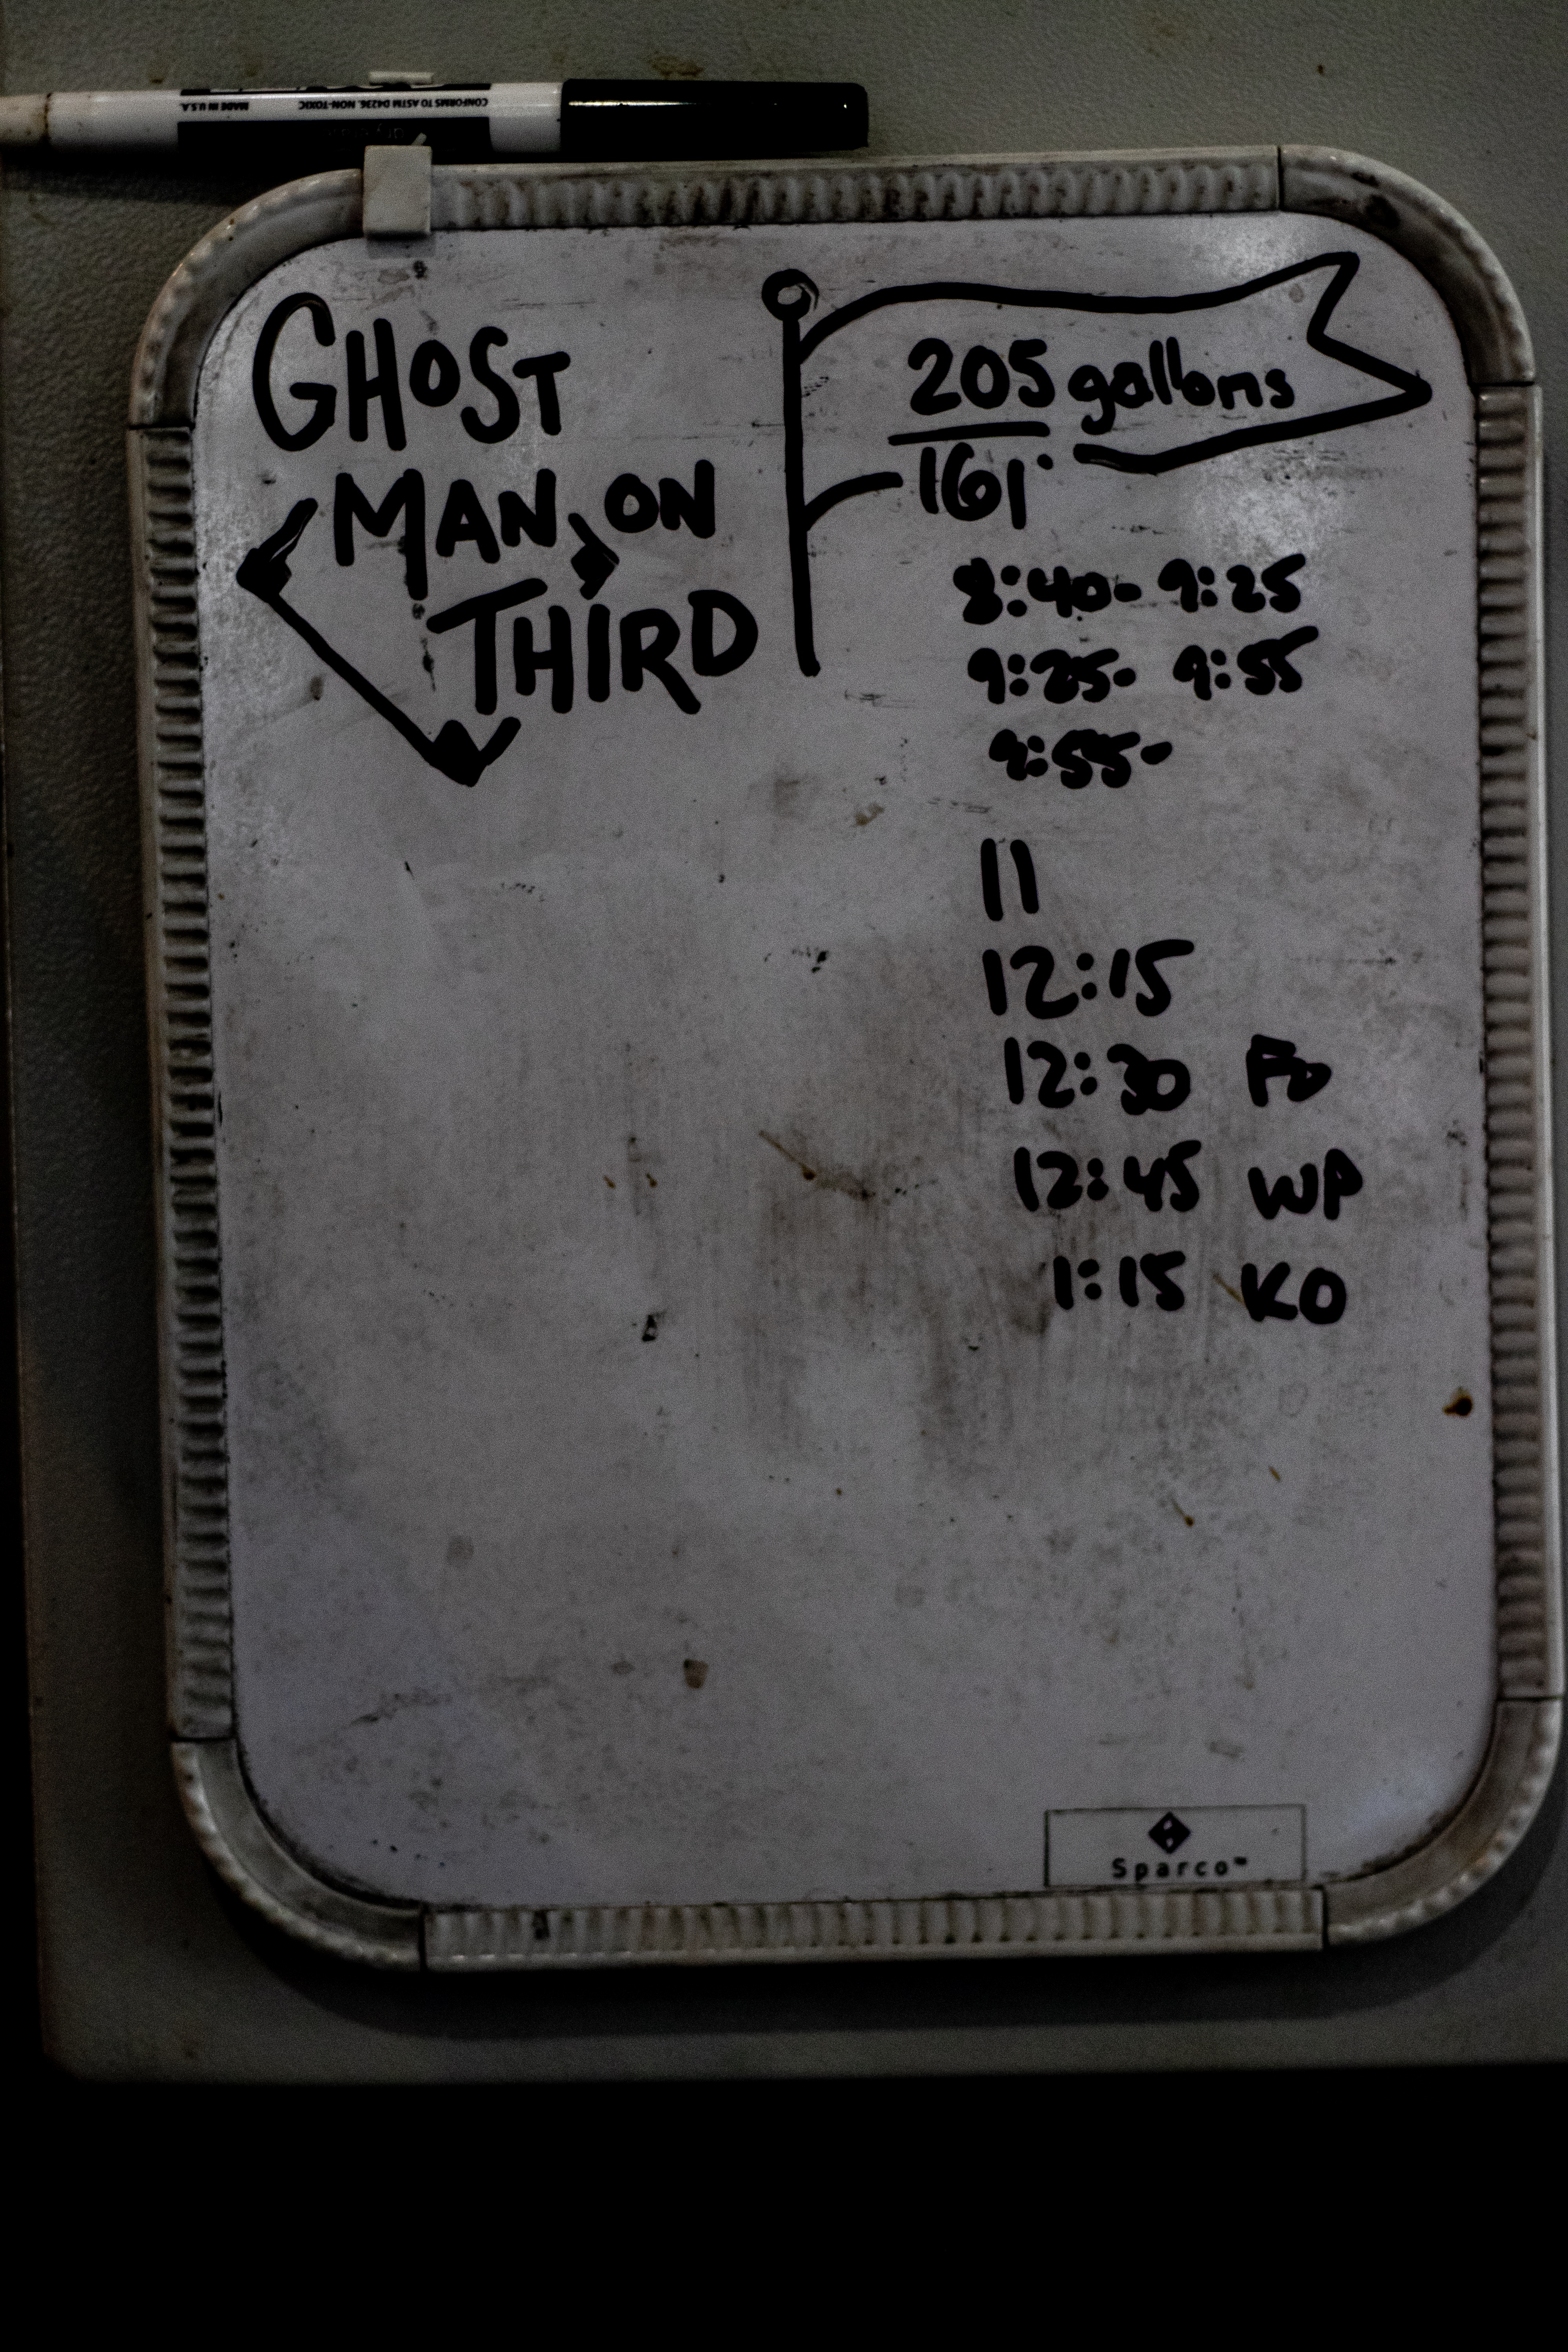 MADE IN U.S.A. CONFORMS TO ASTM D4236. NON-TOXIC
GHOST
MAN ON
THIRD
205 gallons
161°
8:40- 9:25
9:25- 9:55
9:55-
11
12:15
12:30 FO
12:45 WP
1:15 KO
Sparco™